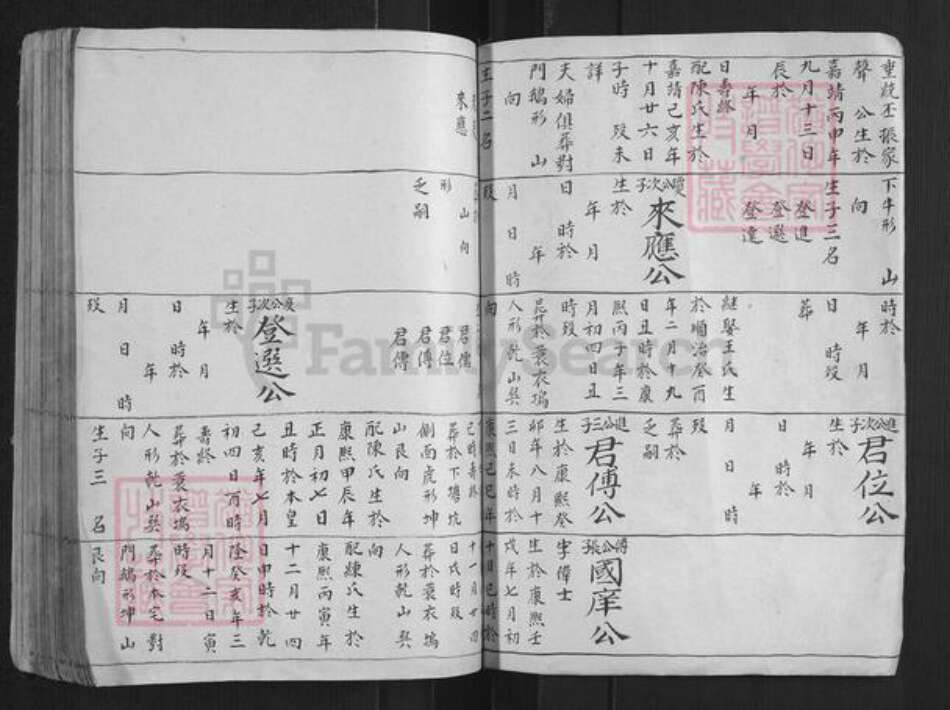 重歧丕振家
聲 公生於
嘉靖丙申年
九月十三日
辰於
年 月
日壽終
配陳氏生於
嘉靖己亥年
十月廿六日
子時 歿未
詳
夫婦俱葬對
門鵝形 山
向
生子二名
來應
下牛形 山
向
生子三名
登進
登選
登達
公次子
來應公
生於
年 月
日 時於
年
月 日 時
歿
形 山 向
乏嗣
時於
年 月
日 時歿
葬
継娶王氏生
於順治癸酉
年二月十九
日丑時於康
熙丙子年三
月初四日丑
時歿
葬於蓑衣塢
人形乾山巽
向
君儒
君位
君傅
君傳
公次子
登選公
生於
年 月
日 時於
年
月 日 時
歿
進公次子
君位公
生於
年 月
日 時於
年
月 日 時
歿
葬於
乏嗣
進公三子
君傅公
生於康熙癸
卯年八月十
三日未時於
康熙己巳年
巳時壽終
葬於下塘坑
側南虎形坤
山艮向
配陳氏生於
康熙甲辰年
正月初七日
丑時於本皇
己亥年七月
初四日酉時
壽終
葬於蓑衣塢
人形乾山巽
向
生子三 名
傅公張
國庠公
字偉士
生於康熙壬
戌年七月初
十日巳時於
十一月廿四
日戌時歿
葬於蓑衣塢
人形乾山巽
向
配練氏生於
康熙丙寅年
十二月廿四
日申時於乾
隆癸亥年三
月十二日寅
時歿
葬於本宅對
門鵝形坤山
艮向
FamilySearch